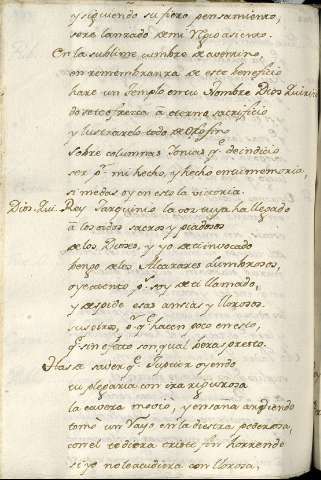 y siguiendo su fiero pensamiento,
sere lanzado de mi Regio asiento.
En la sublime cumbre de aventino,
en remembranza de este beneficio
hare un Templo en tu Nombre Dios Quirino
do se te ofrezca à eterno sacrificio
y lustrarelo todo de
sobre columnas Jonias qe. de indicio
ser pr. mi hecho, y hecho en tu memoria,
si me das oy en esto la victoria.
Dios. Qui. Rey Tarquinio la voz tuya ha llegado
à los oidos sacros y piadosos
de los Dioses, y yo de ti invocado
vengo de los Alcazares lumbrosos,
oye atento pr. soy de ti llamado,
y despide esas ansias y llorosos
suspiros, pr. qe. hacen poco en esto,
qe. sin efeto son qual veras presto.
Has de saver qe. Jupiter oyendo
tu plegaria con ira rigurosa
la cavera movio, y en saña ardiendo
tomò un Rayo en la diestra poderosa,
con el te diera triste fin horrendo
si yo no le acudiera con llorosa,